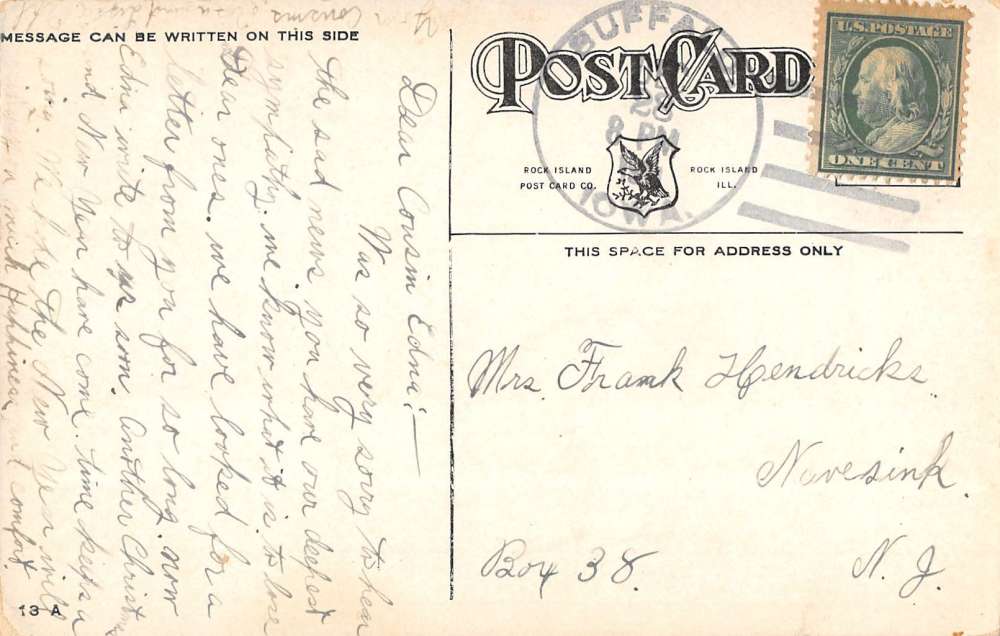 MESSAGE CAN BE WRITTEN ON THIS SIDE
POST CARD
BUFFA
28
8 PM
IOWA.
U.S. POSTAGE
ONE CENT
ROCK ISLAND
POST CARD CO.
ROCK ISLAND
ILL.
THIS SPACE FOR ADDRESS ONLY
Mrs. Frank Hendricks.
Navesink.
Box 38.
N. J.
Dear Cousin Edna:—
Was so very sorry to hear
the sad news. you have our deepest
sympathy. we know what it is to lose
Dear ones. we have looked for a
letter from you for so long. now
Edna write to us soon. Another Christmas
and New Year have come. time keeps a
the New Year will
with Happiness and comfort.
Cousins
13 A